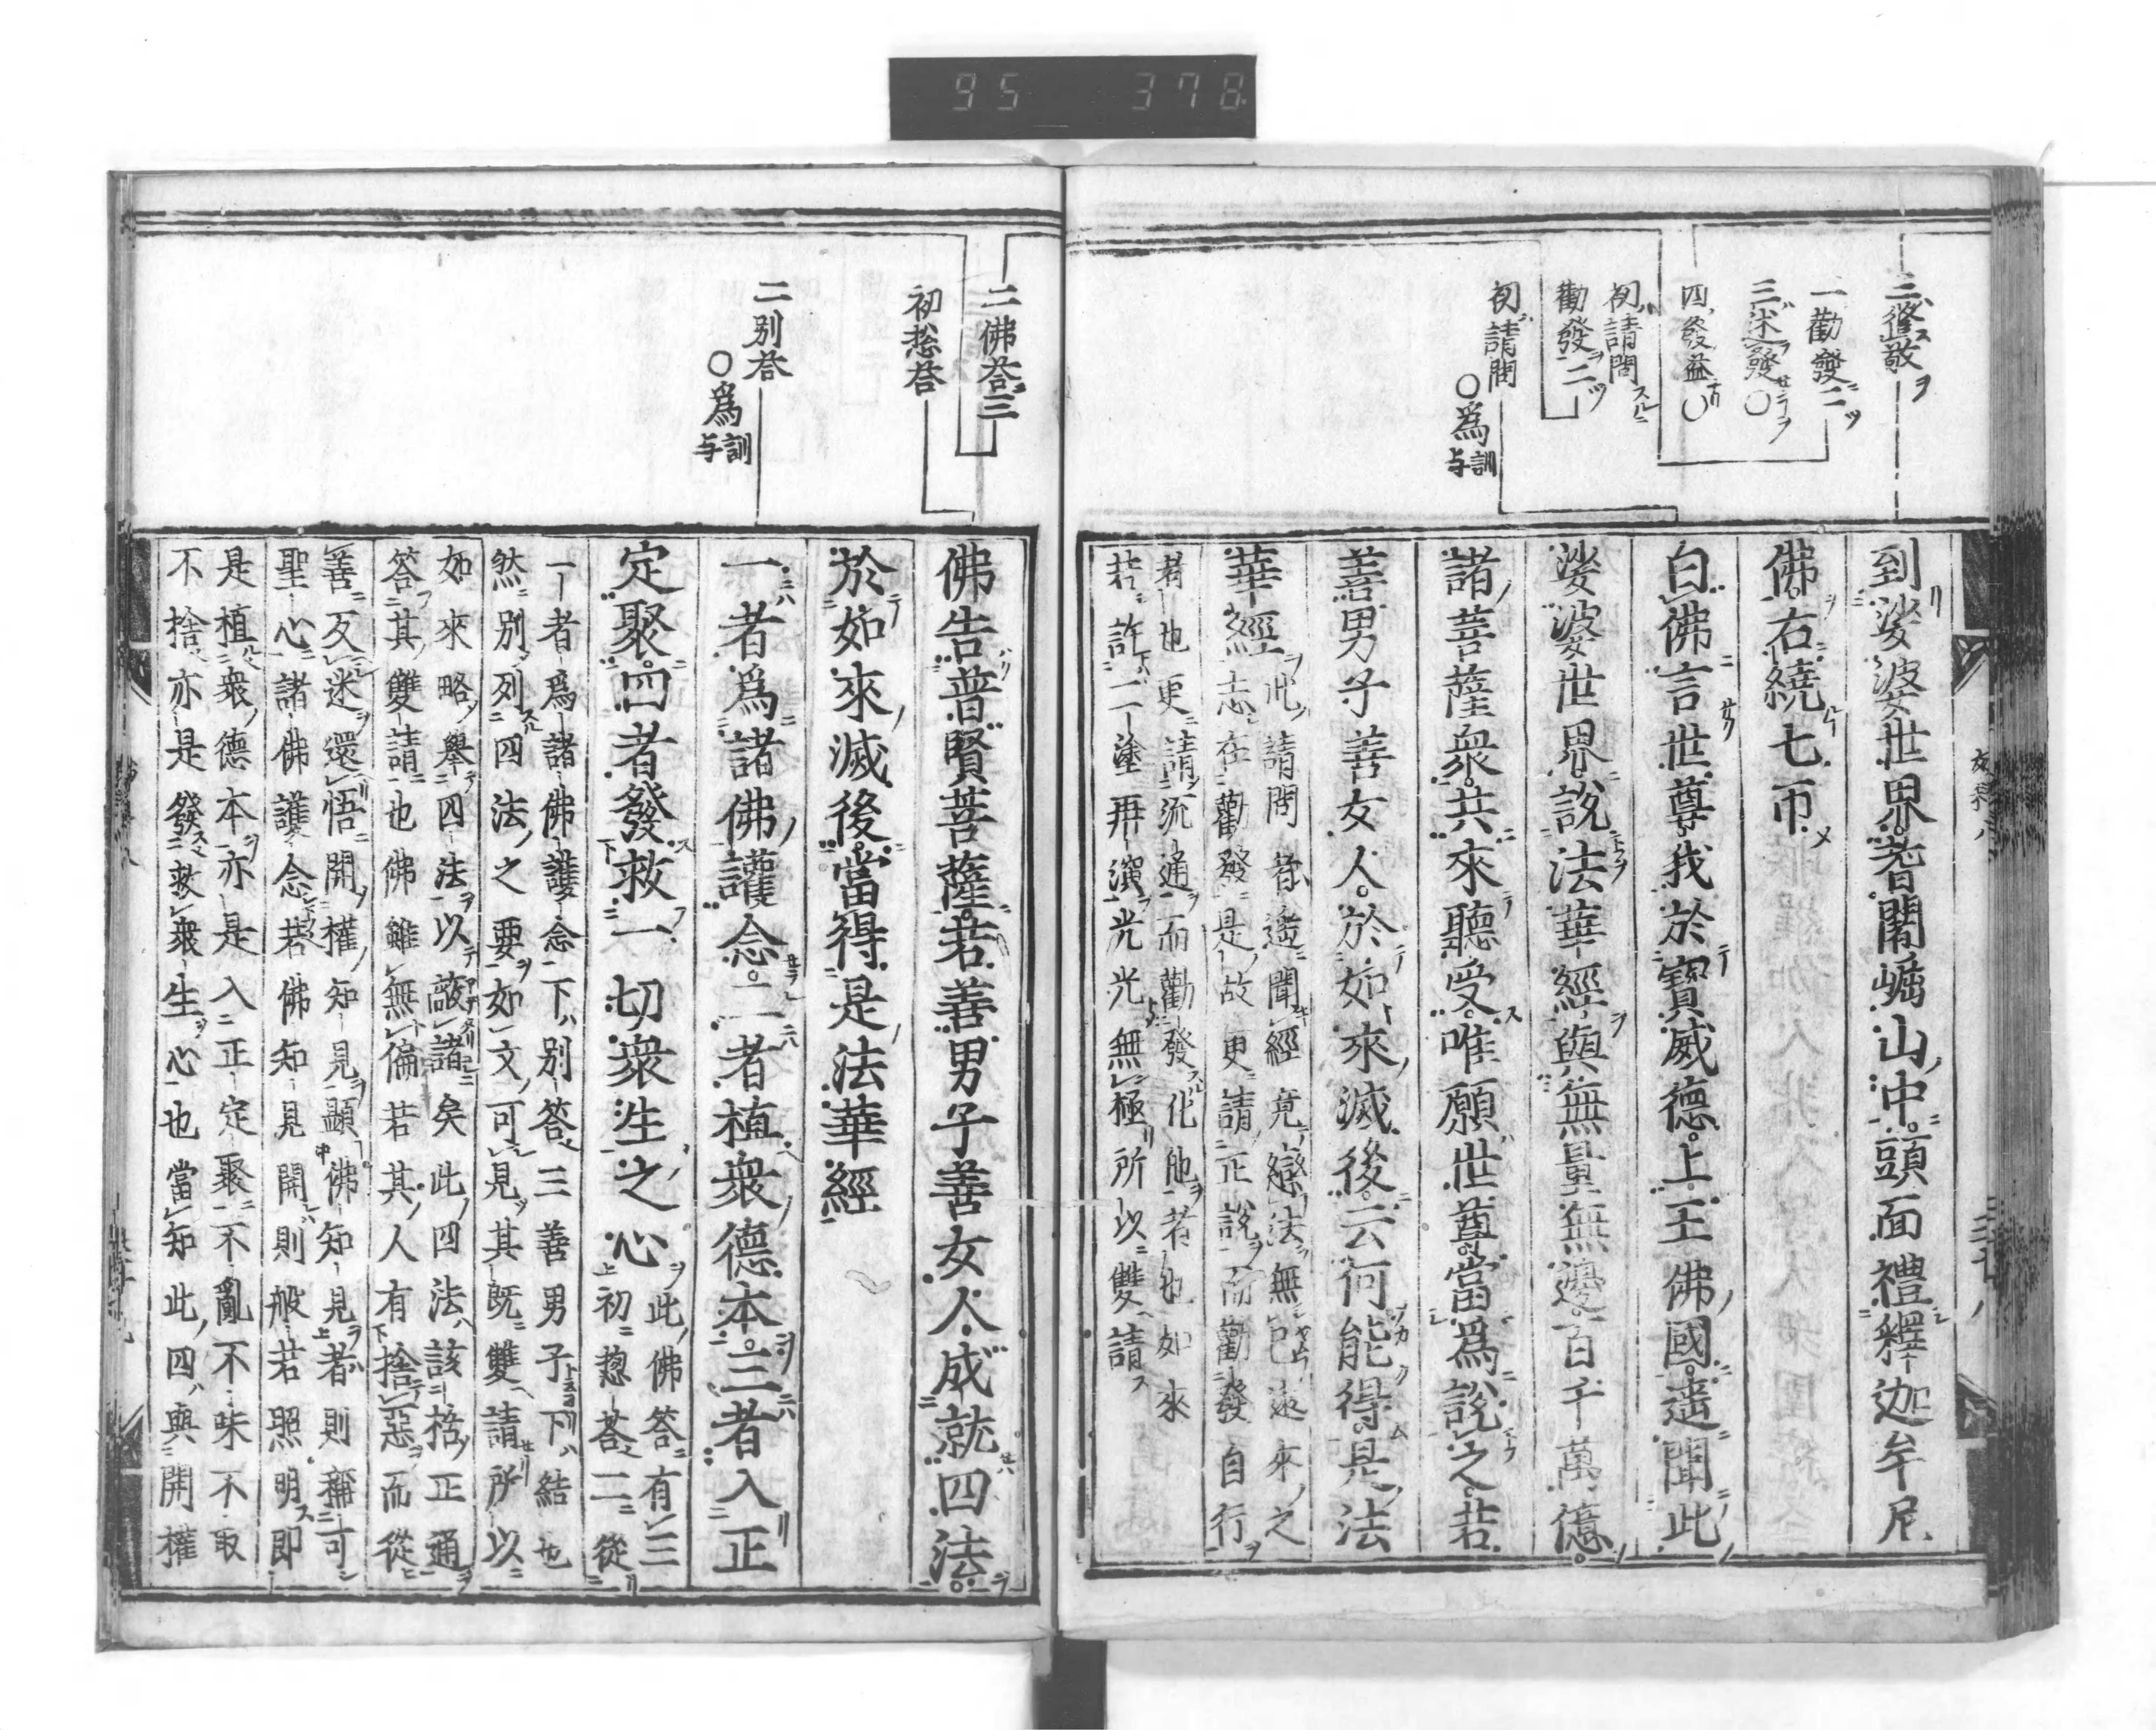 95 378
三修敬
二勸發二
三述發〇
四發益〇
初請問
勸發二
初請問
〇爲訓与
到娑婆世界耆闍崛山中頭面禮釋迦牟尼
佛右繞七帀
白佛言世尊我於寶威德上王佛國遥聞此
娑婆世界說法華經與無量無邊百千萬億
諸菩薩衆共來聽受唯願世尊當爲說之若
善男子善女人於如來滅後云何能得是法
華經此請問者遙聞經竟戀法無已遠來之
志在勸發是故更請正說而勸發自行
者也更請流通而勸發化他者也如來
若許二塗再演光光無極所以雙請
二佛荅三
初惣荅
二別荅
〇爲訓与
佛告普賢菩薩若善男子善女人成就四法
於如來滅後當得是法華經
一者爲諸佛護念二者植衆德本三者入正
定聚四者發救一切衆生之心此佛答有三
初惣荅二從
一者爲諸佛護念下別答三善男子下結也
然別列四法之要如文可見其既雙請所以
如來略舉四法以蔽諸矣此四法該括正通
答其雙請也佛雖無偏若其人有捨惡而從
善反迷還悟開權知見顯佛知見者則稱可
聖心諸佛護念若佛知見開則般若照明即
是植衆德本亦是入正定聚不亂不味不取
不捨亦是發救衆生心也當知此四與開權